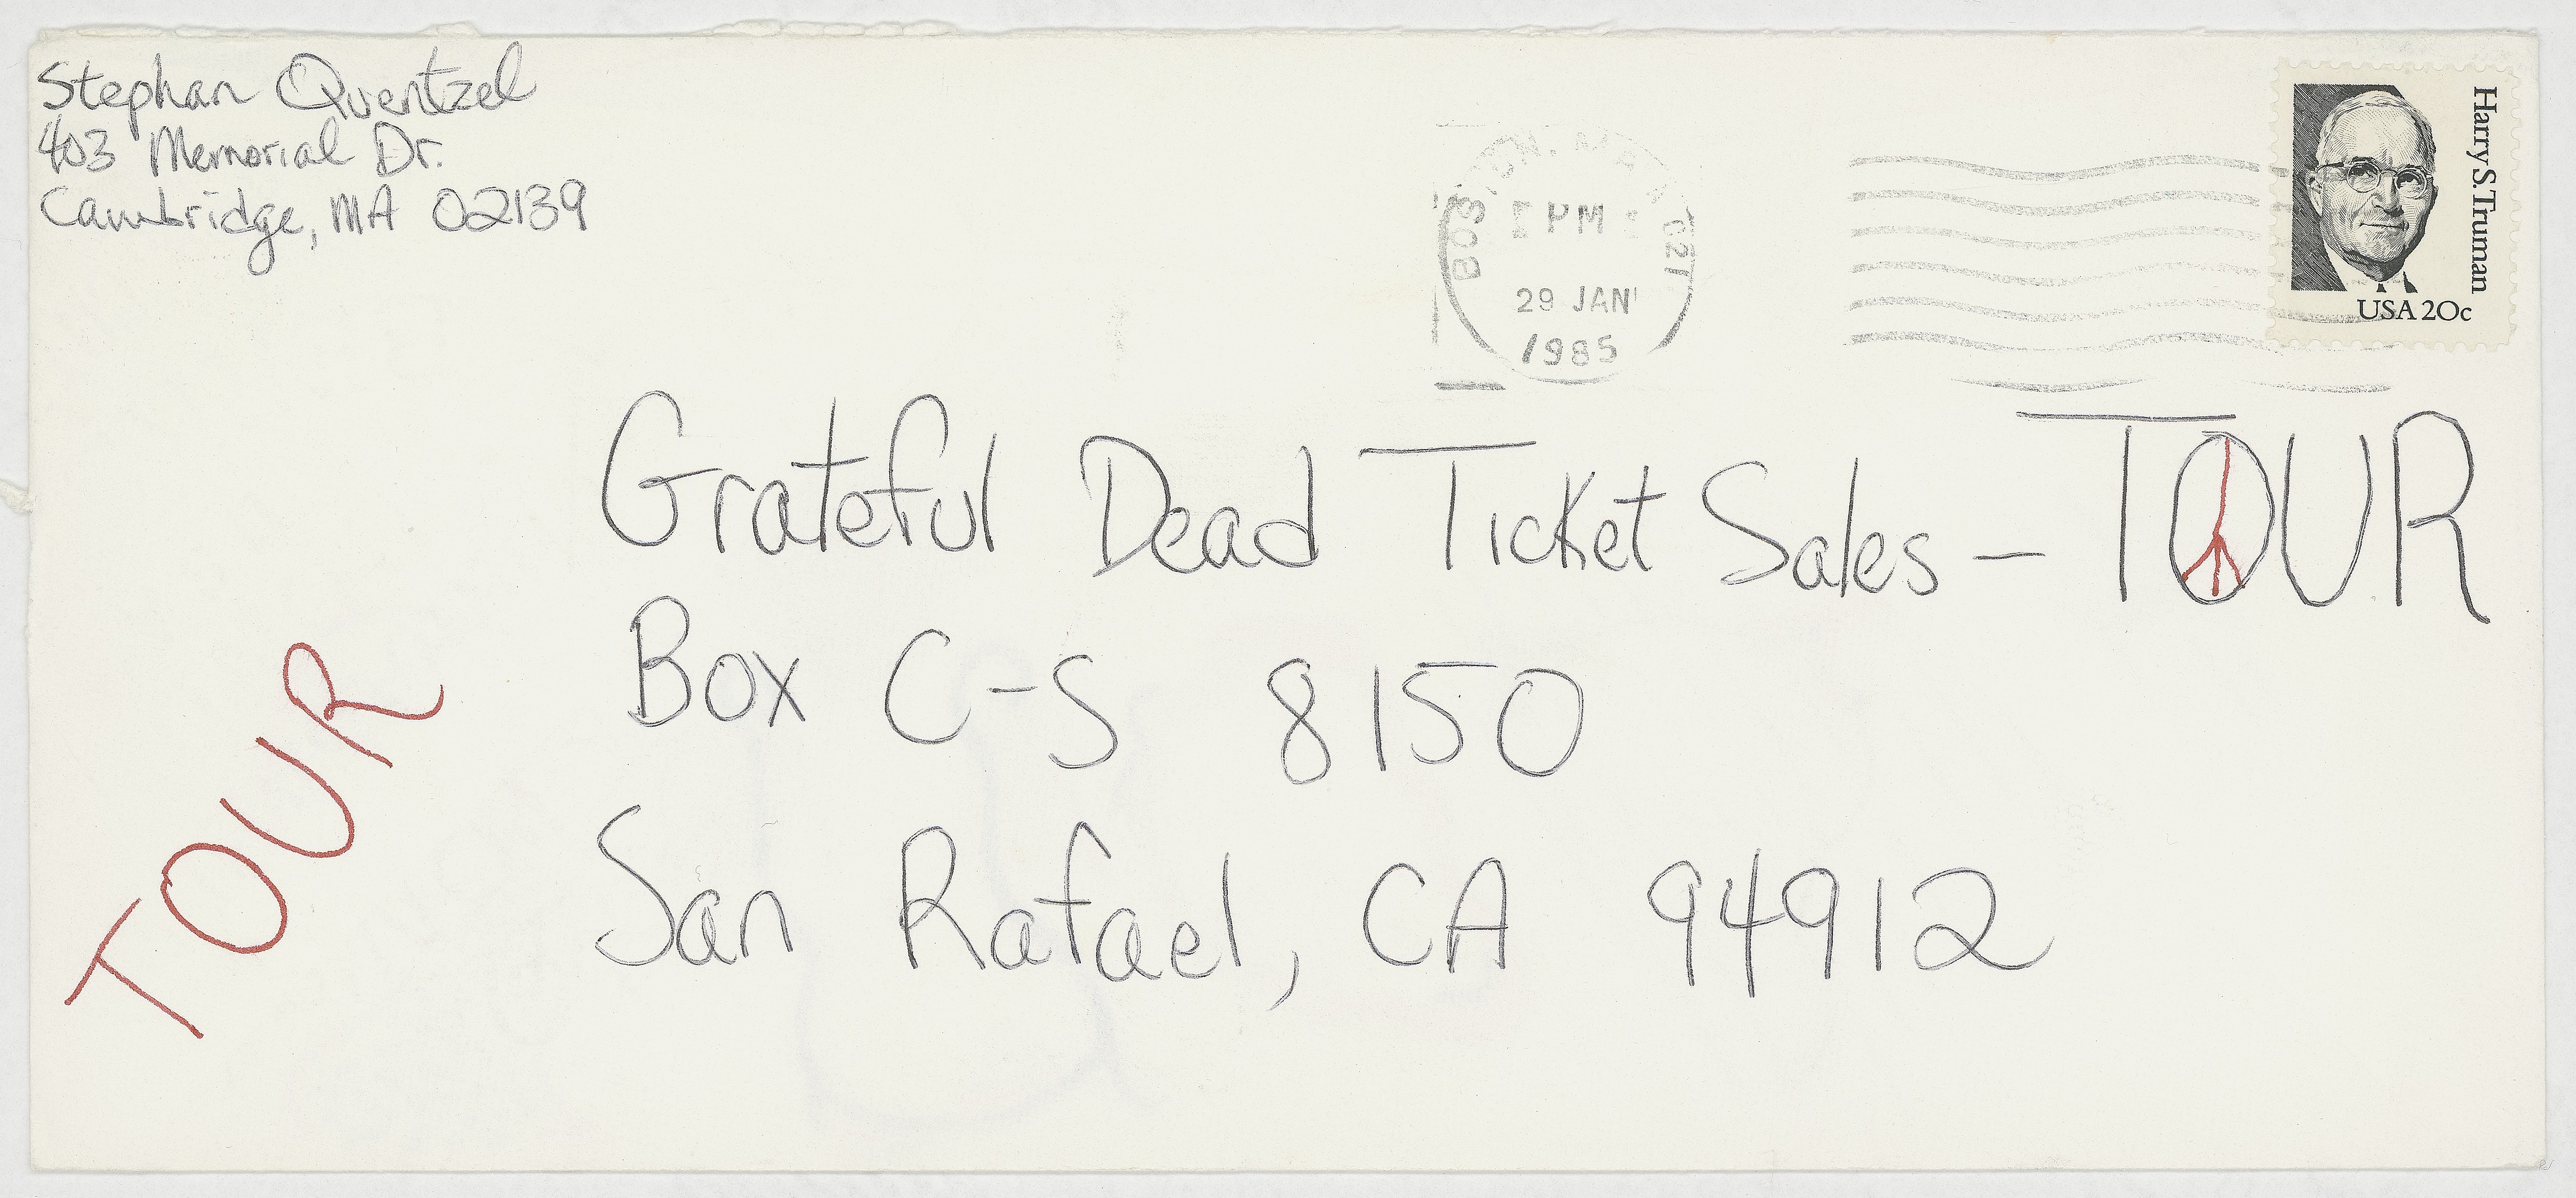 Stephan Quentzel
403 Memorial Dr.
Cambridge, MA 02139
PM
29 JAN
1985
Harry S. Truman
USA 20c
Grateful Dead Ticket Sales - TOUR
Box C-S 8150
San Rafael, CA 94912
TOUR